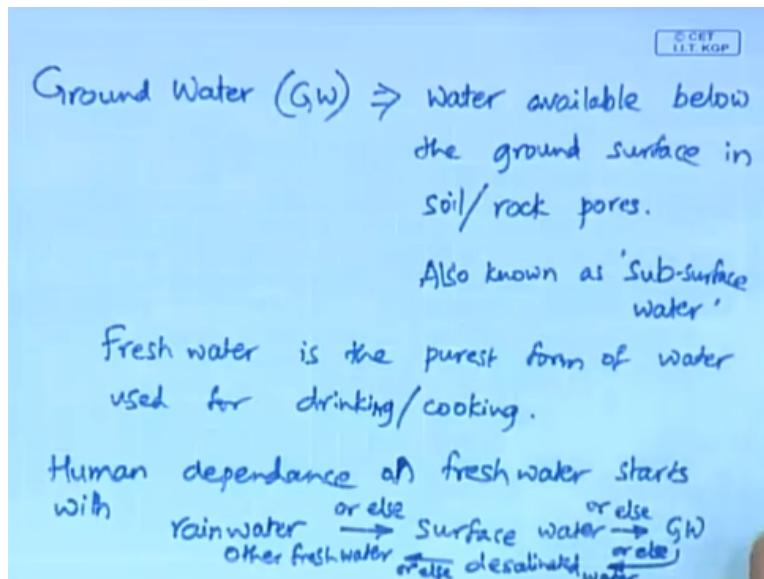 © CET
I.I.T. KGP
Ground Water (GW) ⇒ Water available below
the ground surface in
soil/rock pores.
Also known as 'Sub-surface
water'
Fresh water is the purest form of water
used for drinking/cooking.
Human dependance on fresh water starts
with
rainwater or else → surface water or else → GW
Other fresh water ← or else desalinated water ← or else